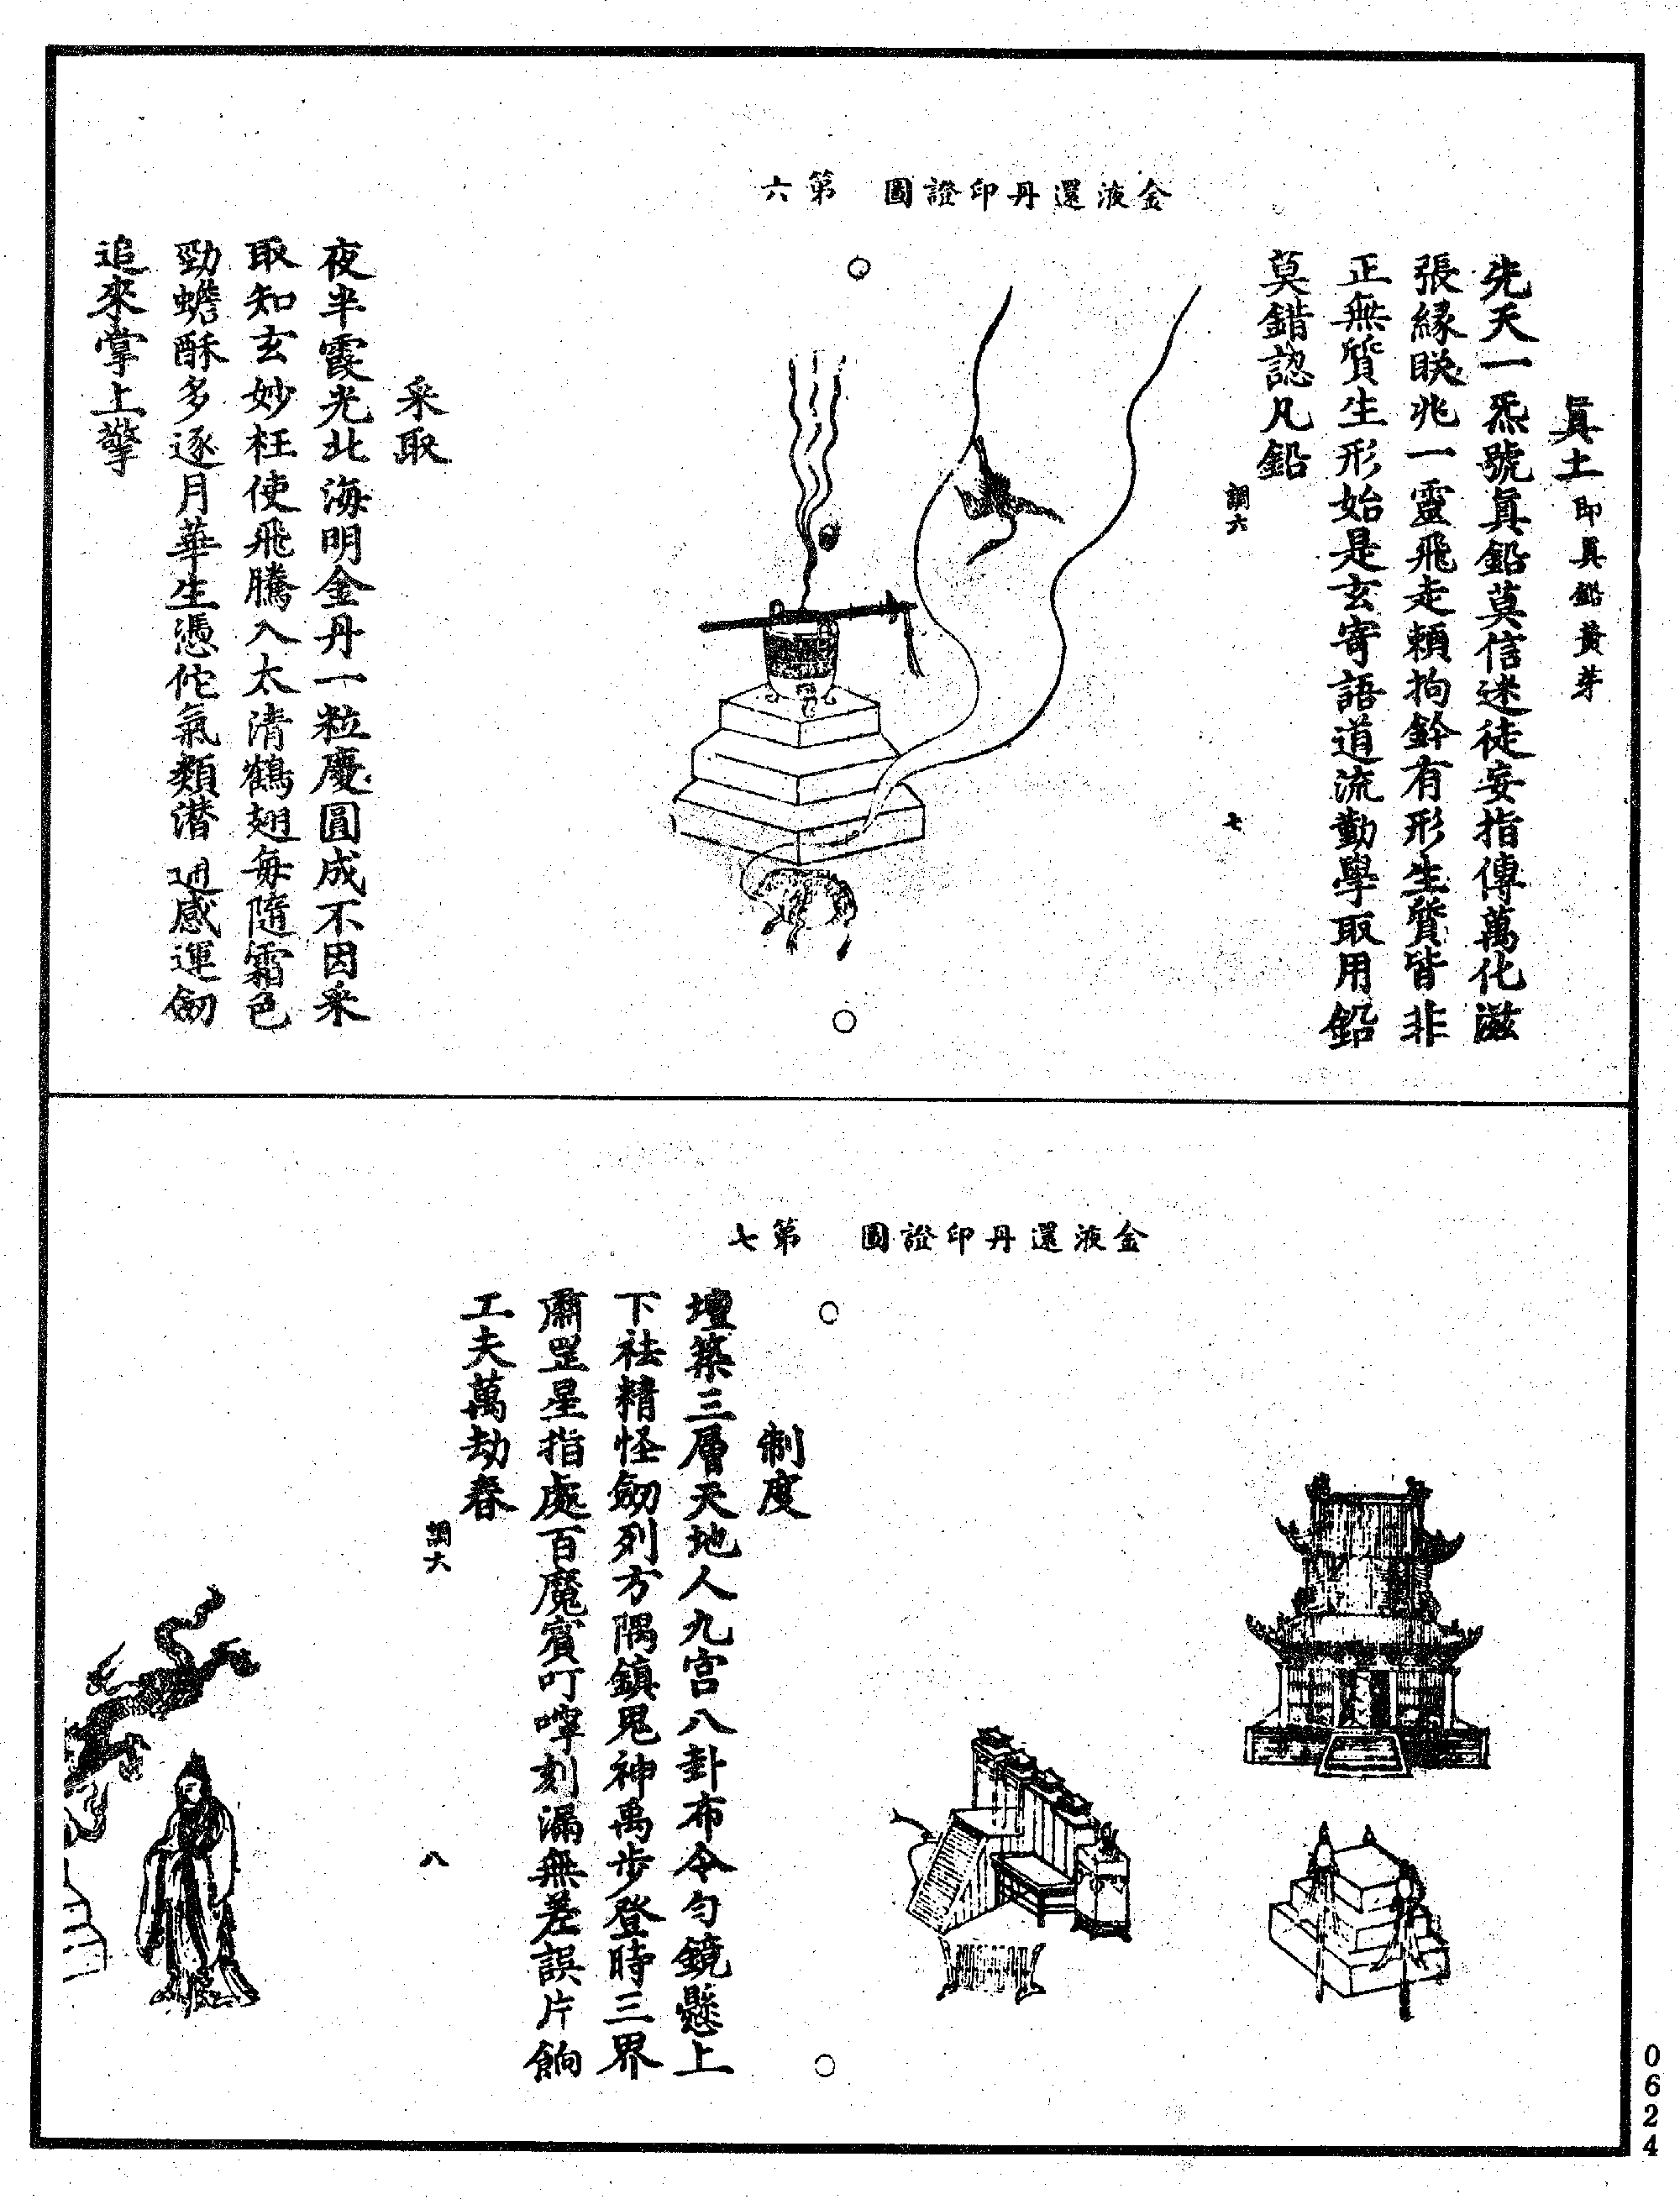 金液還丹印證圖　第六
眞土即眞鉛黃芽
先天一炁號眞鉛莫信迷徒妄指傳萬化滋
張縁眹兆一靈飛走賴拘鈐有形生質皆非
正無質生形始是玄寄語道流勤學取用鉛
莫錯認凡鉛
調六
七
采取
夜半霞光北海明金丹一粒慶圓成不因采
取知玄妙枉使飛騰入太清鶴翅毎隨霜色
勁蟾酥多逐月華生憑佗氣類潜通感運劒
追來掌上擎
金液還丹印證圖　第七
制度
壇築三層天地人九宮八卦布令勻鏡懸上
下祛精怪劒列方隅鎮鬼神禹步登時三界
肅罡星指處百魔賓叮嚀刻漏無差誤片餉
工夫萬劫春
調六
八
0624